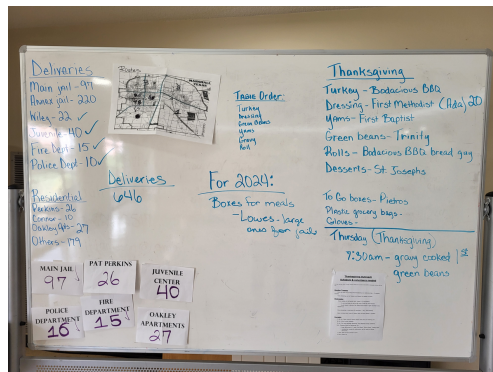 Deliveries
Main jail - 97
Annex jail - 220
Wiley - 22 ✓
Juvenile - 40 ✓
Fire Dept - 15 ✓
Police Dept - 10 ✓
Presidential
Perkins - 26
Connor - 10
Oakley Apts - 27
Others - 179
Routes
Deliveries
646
Table Order:
Turkey
Dressing
Green Beans
Yams
Gravy
Roll
For 2024:
Boxes for meals
- Lowes - large
ones for jails
Thanksgiving
Turkey - Bodacious BBQ
Dressing - First Methodist (Ada) 20
Yams - First Baptist
Green beans - Trinity
Rolls - Bodacious BBQ bread guy
Desserts - St. Josephs
To Go boxes - Pietros
Plastic grocery bags -
Gloves -
Thursday (Thanksgiving)
7:30am - gravy cooked 1st
green beans
MAIN JAIL
97
PAT PERKINS
26
JUVENILE
CENTER
40
POLICE
DEPARTMENT
10
FIRE
DEPARTMENT
15
OAKLEY
APARTMENTS
27